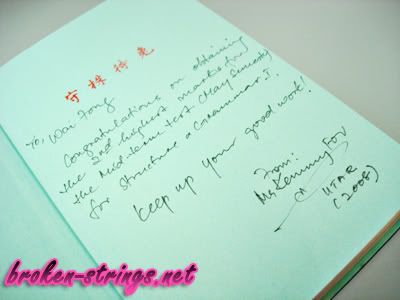 守株待兔
To, Wai Fong
Congratulations on obtaining
the 2nd highest marks in
the mid-term test (May Semester)
for Structure & Grammar I.
Keep up your good work!
From:
Ms Kemmy Foo
UTAR
(2008)
broken-strings.net